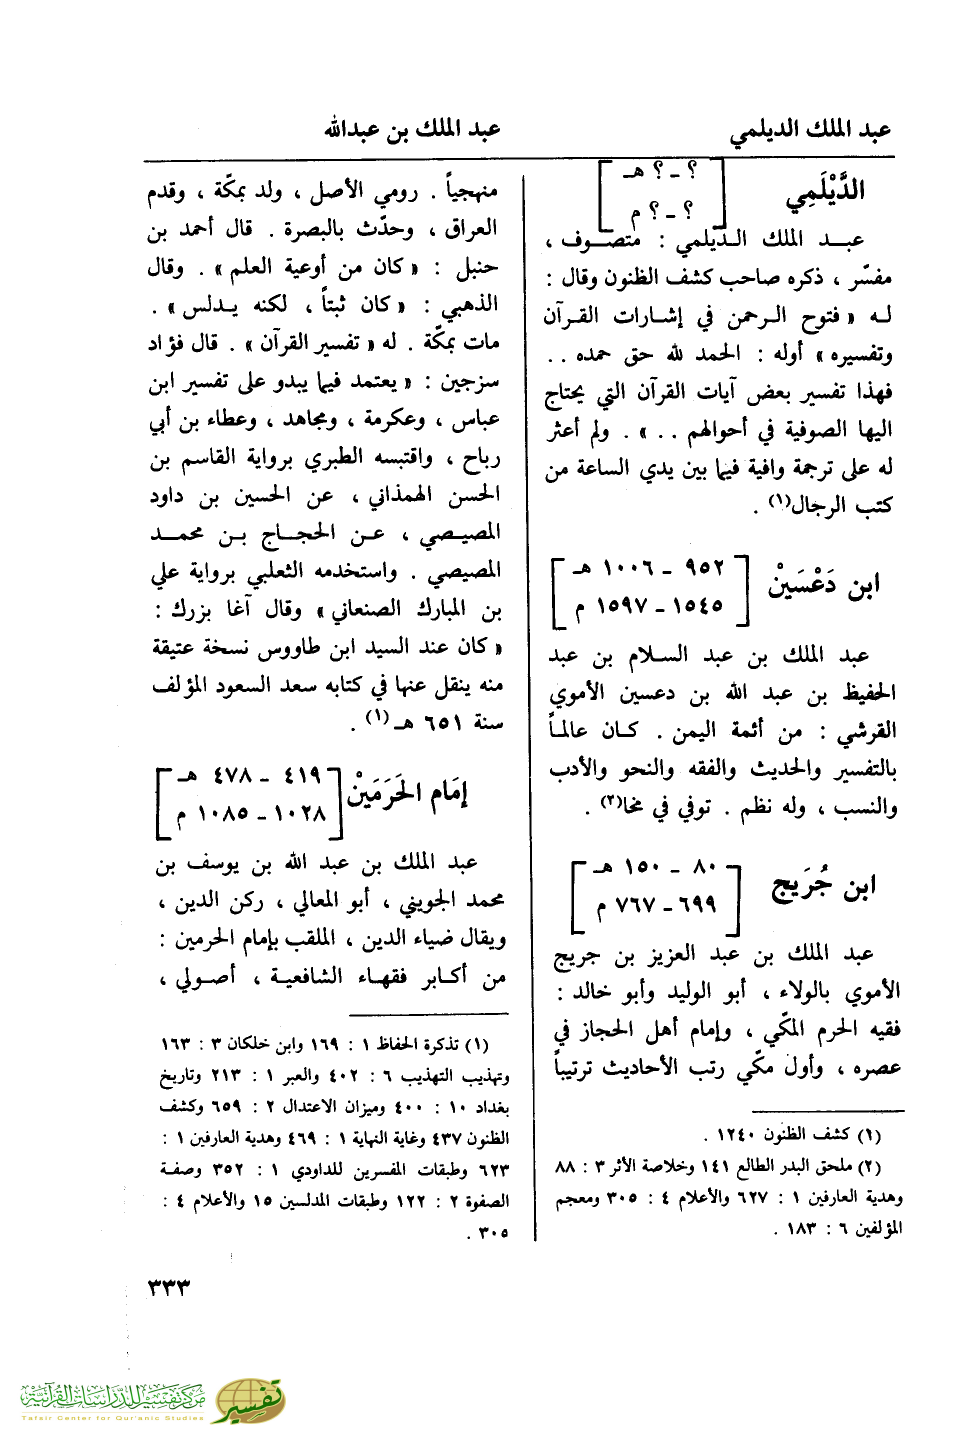 عبد الملك الديلمي
عبد الملك بن عبدالله
الدَّيْلَمِي
؟ ـ ؟ هـ
؟ ـ ؟ م
عبـد الملك الـديلمي : متصـوف ،
مفسّر ، ذكره صاحب كشف الظنون وقال :
لـه « فتوح الـرحمن في إشـارات القـرآن
وتفسيره » أوله : الحمد لله حق حمده . .
فهذا تفسير بعض آيات القرآن التي يحتاج
اليها الصوفية في أحوالهم . . » . ولم أعثر
له على ترجمة وافية فيما بين يدي الساعة من
كتب الرجال(١) .
ابن دَعْسَيْن
٩٥٢ ـ ١٠٠٦ هـ
١٥٤٥ ـ ١٥٩٧ م
عبد الملك بن عبد السـلام بن عبد
الحفيظ بن عبد الله بن دعسين الأموي
القرشي : من أئمة اليمن . كـان عالمـاً
بالتفسير والحديث والفقه والنحو والأدب
والنسب ، وله نظم . توفي في مخا(٢) .
ابن جُرَيج
٨٠ ـ ١٥٠ هـ
٦٩٩ ـ ٧٦٧ م
عبد الملك بن عبد العزيز بن جريج
الأموي بالولاء ، أبو الوليد وأبو خالد :
فقيه الحرم المكّي ، وإمام أهل الحجاز في
عصره ، وأول مكّي رتب الأحاديث ترتيباً
(١) كشف الظنون ١٢٤٠ .
(٢) ملحق البدر الطالع ١٤١ وخلاصة الأثر ٣ : ٨٨
وهدية العارفين ١ : ٦٢٧ والأعلام ٤ : ٣٠٥ ومعجم
المؤلفين ٦ : ١٨٣ .
منهجياً . رومي الأصل ، ولد بمكّة ، وقدم
العراق ، وحدّث بالبصرة . قال أحمد بن
حنبل : « كان من أوعية العلم » . وقال
الذهبي : « كان ثبتاً ، لكنه يـدلس » .
مات بمكّة . له « تفسير القرآن » . قال فؤاد
سزجين : « يعتمد فيما يبدو على تفسير ابن
عباس ، وعكرمة ، ومجاهد ، وعطاء بن أبي
رباح ، واقتبسه الطبري برواية القاسم بن
الحسن الهمذاني ، عن الحسين بن داود
المصيصي ، عـن الحجـاج بـن محمـد
المصيصي . واستخدمه الثعلبي برواية علي
بن المبارك الصنعاني » وقال آغا بزرك :
« كان عند السيد ابن طاووس نسخة عتيقة
منه ينقل عنها في كتابه سعد السعود المؤلف
سنة ٦٥١ هـ(١) .
إمَام الحَرَمَيْن
٤١٩ ـ ٤٧٨ هـ
١٠٢٨ ـ ١٠٨٥ م
عبد الملك بن عبد الله بن يوسف بن
محمد الجويني ، أبو المعالي ، ركن الدين ،
ويقال ضياء الدين ، الملقب بإمام الحرمين :
من أكـابر فقهـاء الشافعيـة ، أصـولي ،
(١) تذكرة الحفاظ ١ : ١٦٩ وابن خلكان ٣ : ١٦٣
وتهذيب التهذيب ٦ : ٤٠٢ والعبر ١ : ٢١٣ وتاريخ
بغداد ١٠ : ٤٠٠ وميزان الاعتدال ٢ : ٦٥٩ وكشف
الظنون ٤٣٧ وغاية النهاية ١ : ٤٦٩ وهدية العارفين ١ :
٦٢٣ وطبقات المفسرين للداودي ١ : ٣٥٢ وصفـة
الصفوة ٢ : ١٢٢ وطبقات المدلسين ١٥ والأعلام ٤ :
٣٠٥ .
٣٣٣
مركز تفسير للدراسات القرآنية
Tafsir Center for Qur'anic Studies
تفسير